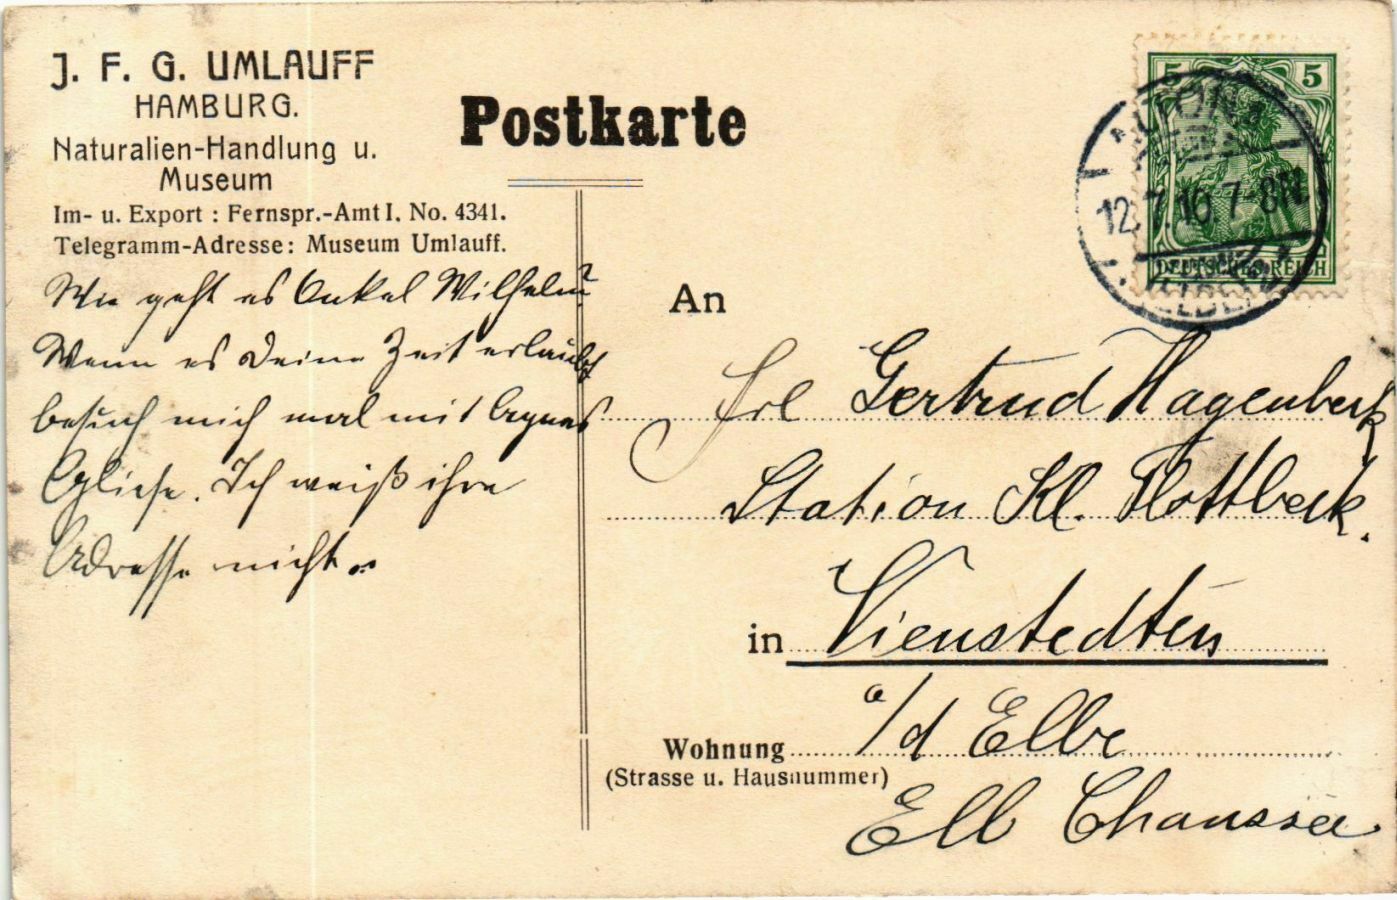 J. F. G. UMLAUFF
HAMBURG.
Naturalien-Handlung u.
Museum
Im- u. Export : Fernspr.-Amt I. No. 4341.
Telegramm-Adresse: Museum Umlauff.
Postkarte
5 5
DEUTSCHES REICH
ALTONA
12.7.10.7-8N.
(ELBE)
Wie geht es Onkel Wilhelm?
Wenn es Deine Zeit erlaubt
besuch mich mal mit Agnes
Ich weiß ihre
Adresse nicht.
An
Frl Gertrud Hagenbeck
Station Kl. Flottbeck.
in Nienstedten
a/d Elbe
Wohnung
(Strasse u. Hausnummer)
Elb Chaussee